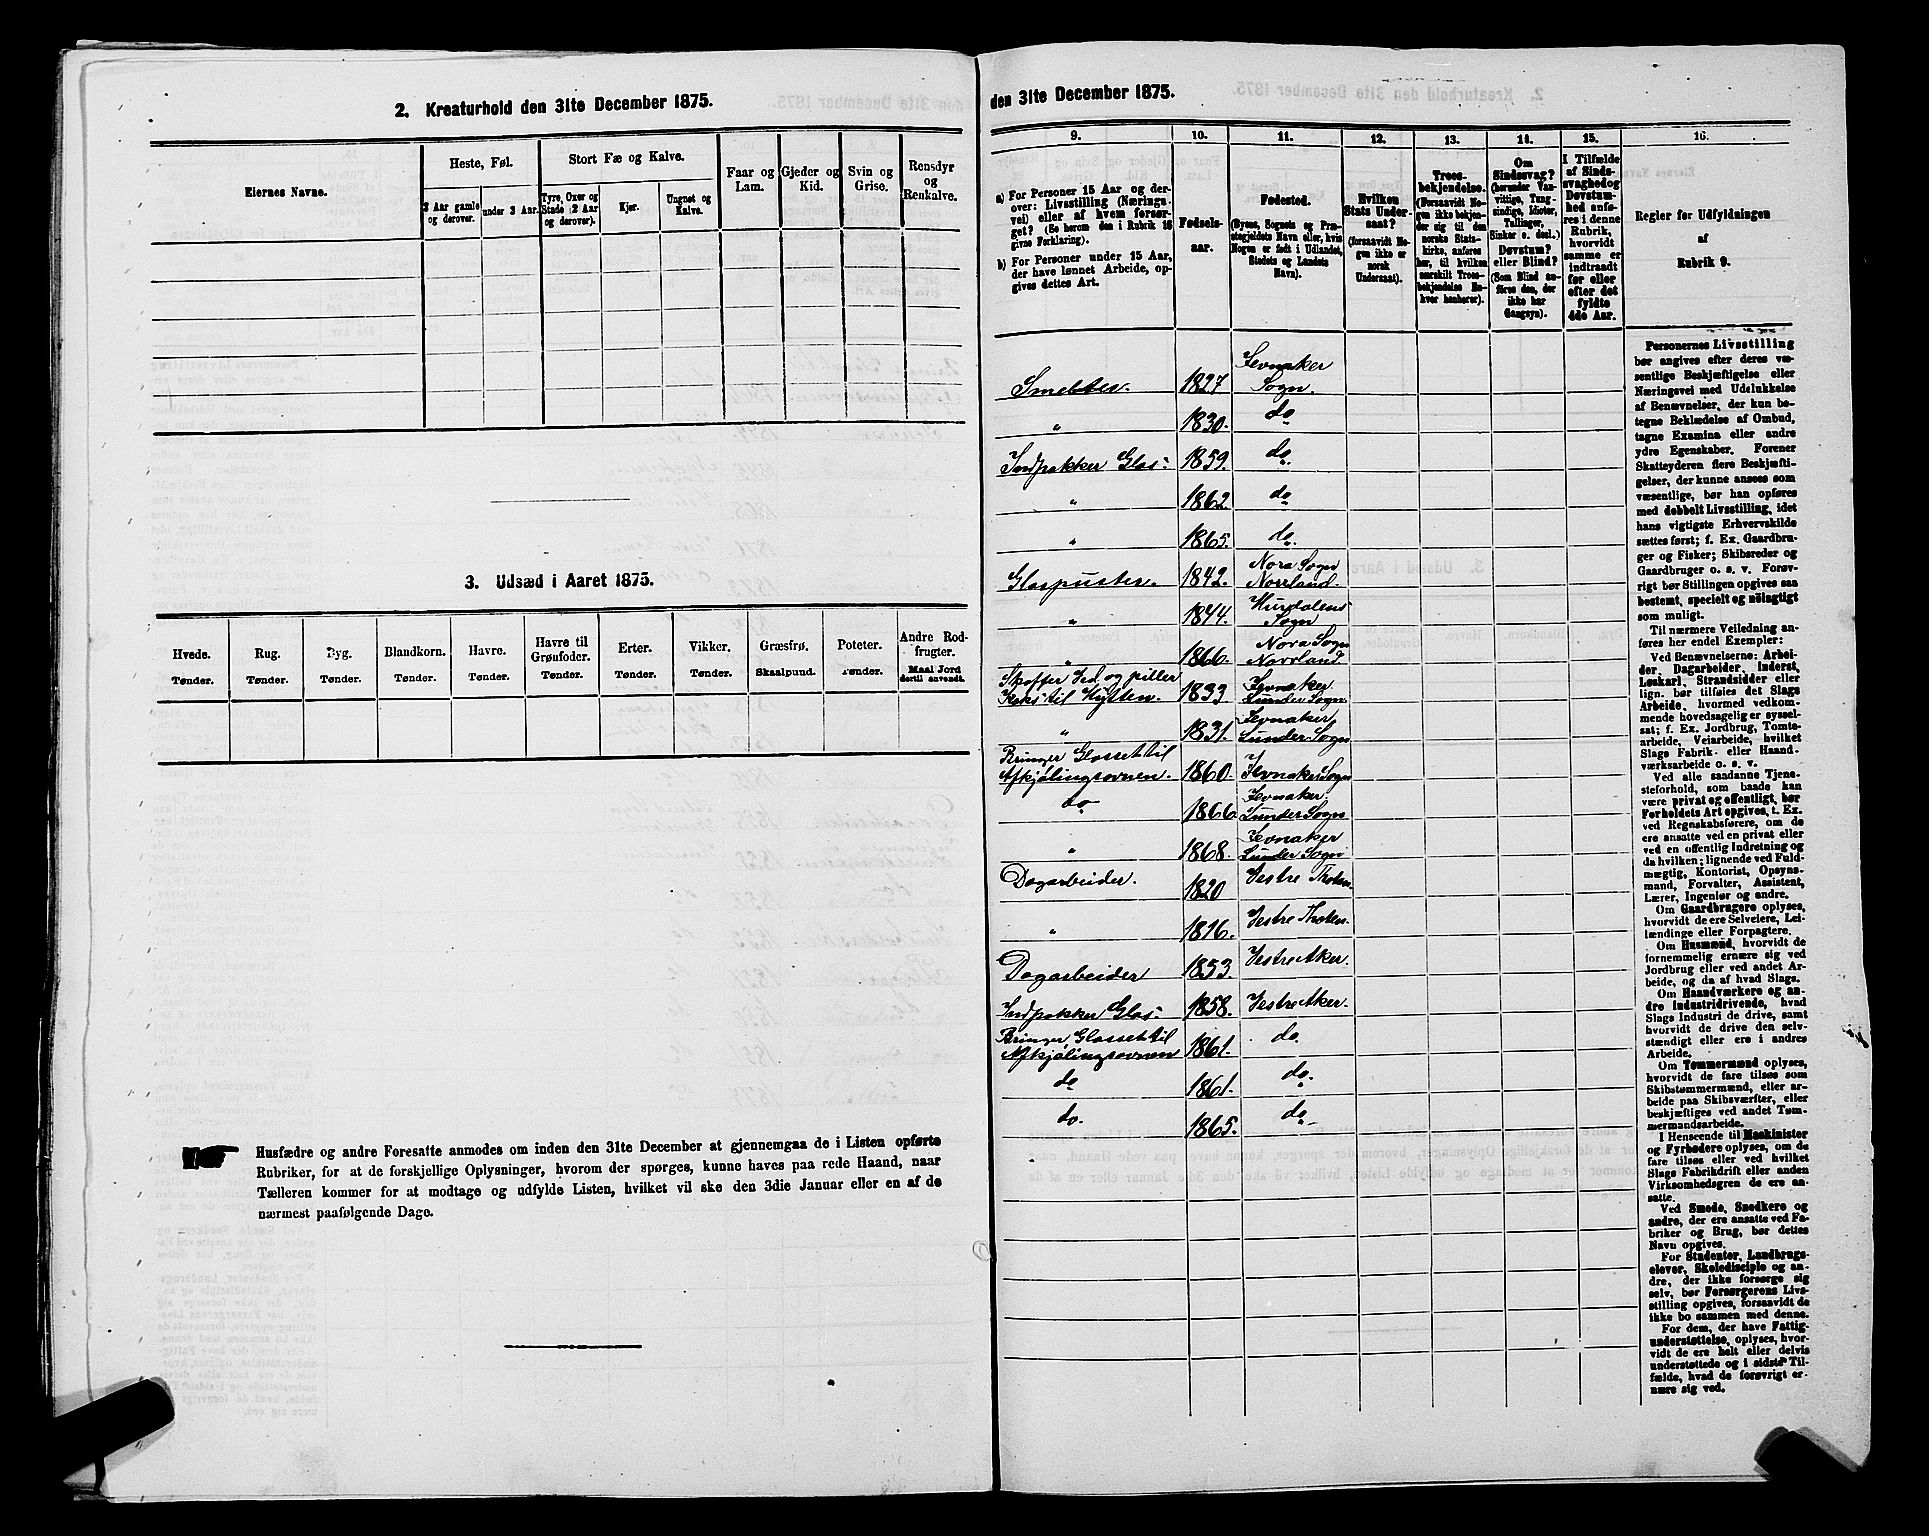 2. Kreaturhold den 31te December 1875.
Eiernes Navne.
Heste, Føl.
Stort Fæ og Kalve.
Faar og
Lam.
Gjeder og
Kid.
Svin og
Grise.
Rensdyr
og
Renkalve.
3 Aar gamle
og derover.
under 3 Aar.
Tyre, Oxer og
Stude (2 Aar
og derover).
Kjør.
Ungnet og
Kalve.
3. Udsæd i Aaret 1875.
Hvede.
Tønder.
Rug.
Tønder.
Byg.
Tønder.
Blandkorn.
Tønder.
Havre.
Tønder.
Havre til
Grønfoder.
Tønder.
Erter.
Tønder.
Vikker.
Tønder.
Græsfrø.
Skaalpund.
Poteter.
Tønder.
Andre Rod-
frugter.
Maal Jord
dertil anvendt.
Husfædre og andre Foresatte anmodes om inden den 31te December at gjennemgaa de i Listen opførte
Rubriker, for at de forskjellige Oplysninger, hvorom der spørges, kunne haves paa rede Haand, naar
Tælleren kommer for at modtage og udfylde Listen, hvilket vil ske den 3die Januar eller en af de
nærmest paafølgende Dage.
den 31te December 1875.
9.
10.
11.
12.
13.
14.
15.
16.
a) For Personer 15 Aar og der-
over: Livsstilling (Næringsvei)
eller af hvem forsør-
get? (Se herom den i Rubrik 16
givne Forklaring).
b) For Personer under 15 Aar,
der have lønnet Arbeide, op-
gives dettes Art.
Fødsels-
aar.
Fødested.
(Byens, Sognets og Præ-
stegjeldets Navn eller, hvis
Nogen er født i Udlandet,
Stedets og Landets
Navn).
Hvilken
Stats Under-
saat?
(forsaavidt No-
gen ikke er
norsk
Undersaat).
Troes-
bekjendelse.
(Forsaavidt No-
gen ikke bekjen-
der sig til den
norske Stats-
kirke, anføres
her, til hvilken
særskilt Troes-
bekjendelse En-
hver henhører).
Om
Sindssvag?
(herunder Van-
vittige, Tung-
sindige, Idioter,
Tullinger,
Sinker o. desl.)
Døvstum?
eller Blind?
(Som Blind an-
føres den, der
ikke har
Gangsyn).
I Tilfælde
af Sinds-
svaghed og
Døvstum-
hed anfø-
res i denne
Rubrik,
hvorvidt
samme er
indtraadt
før eller
efter det
fyldte
4de Aar.
Regler for Udfyldningen
af
Rubrik 9.
Smelter. 1827 Jevnaker Sogn.
" 1830. do
Indpakker Glas. 1859. do.
" 1862. do
" 1865. do.
Glaspuster. 1842. Nora Sogn Norrland.
" 1844. Hurdalens Sogn
" 1866. Nora Sogn Norrland
Skaffer Ved og piller Koks til Hytten. 1833 Jevnaker Lunder Sogn
" 1831. Jevnaker Lunder Sogn
Bringer Glasset til Afkjølingsovnen. 1860. Jevnaker Sogn
do 1866. Jevnaker Lunder Sogn
" 1868. Jevnaker Lunder Sogn
Dagarbeider. 1820 Vestre Thoten.
" 1816. Vestre Thoten.
Dagarbeider 1853. Vestre Aker.
Indpakker Glas. 1858. Vestre Aker.
Bringer Glasset til Afkjølingsovnen 1861. do.
do 1861. do.
do. 1865. do
Personernes Livsstilling
bør angives efter deres væ-
sentlige Beskjæftigelse eller
Næringsvei med Udelukkelse
af Benævnelser, der kun be-
tegne Beklædelse af Ombud,
tagne Examina eller andre
ydre Egenskaber. Forener
Skatteyderen flere Beskjæfti-
gelser, der kunne ansees som
væsentlige, bør han opføres
med dobbelt Livsstilling, idet
hans vigtigste Erhvervskilde
sættes først; f. Ex. Gaardbru-
ger og Fisker; Skibsreder og
Gaardbruger o. s. v. Forøv-
rigt bør Stillingen opgives saa
bestemt, specielt og nøiagtigt
som muligt.
Til nærmere Veiledning an-
føres her endel Exempler:
Ved Benævnelserne: Arbei-
der, Dagarbeider, Inderst,
Løskarl, Strandsidder eller
lign. bør tilføies det Slags
Arbeide, hvormed vedkom-
mende hovedsagelig er syssel-
sat; f. Ex. Jordbrug, Tomte-
arbeide, Veiarbeide, hvilket
Slags Fabrik- eller Haand-
værksarbeide o. s. v.
Ved alle saadanne Tjene-
steforhold, som baade kan
være privat og offentligt, bør
Forholdets Art opgives, t. Ex.
ved Regnskabsførere, om de
ere ansatte ved en privat eller
ved en offentlig Indretning og
da hvilken; lignende ved Fuld-
mægtig, Kontorist, Opsyns-
mand, Forvalter, Assistent,
Lærer, Ingeniør og andre.
Om Gaardbrugere oplyses,
hvorvidt de ere Selveiere, Lei-
lændinge eller Forpagtere.
Om Husmænd, hvorvidt de
fornemmelig ernære sig ved
Jordbrug eller ved andet Ar-
beide, og da af hvad Slags.
Om Haandværkere og an-
dre Industridrivende, hvad
Slags Industri de drive, samt
hvorvidt de drive den selv-
stændigt eller ere i andres
Arbeide.
Om Tømmermænd oplyses,
hvorvidt de fare tilsøs som
Skibstømmermænd, eller ar-
beide paa Skibsværfter, eller
beskjæftiges ved andet Tøm-
mermandsarbeide.
I Henseende til Maskinister
og Fyrbødere oplyses, om de
fare tilsøs eller ved hvilket
Slags Fabrikdrift eller anden
Virksomhedsgren de ere an-
satte.
Ved Smede, Snedkere og
andre, der ere ansatte ved Fa-
briker og Brug, bør dettes
Navn opgives.
For Studenter, Landbrugs-
elever, Skoledisciple og an-
dre, der ikke forsørge sig
selv, bør Forsørgerens Livs-
stilling opgives, forsaavidt de
ikke bo sammen med denne.
For dem, der have Fattig-
understøttelse, oplyses, hvor-
vidt de ere helt eller delvis
understøttede og i sidste Til-
fælde, hvad de forøvrigt er-
nære sig ved.